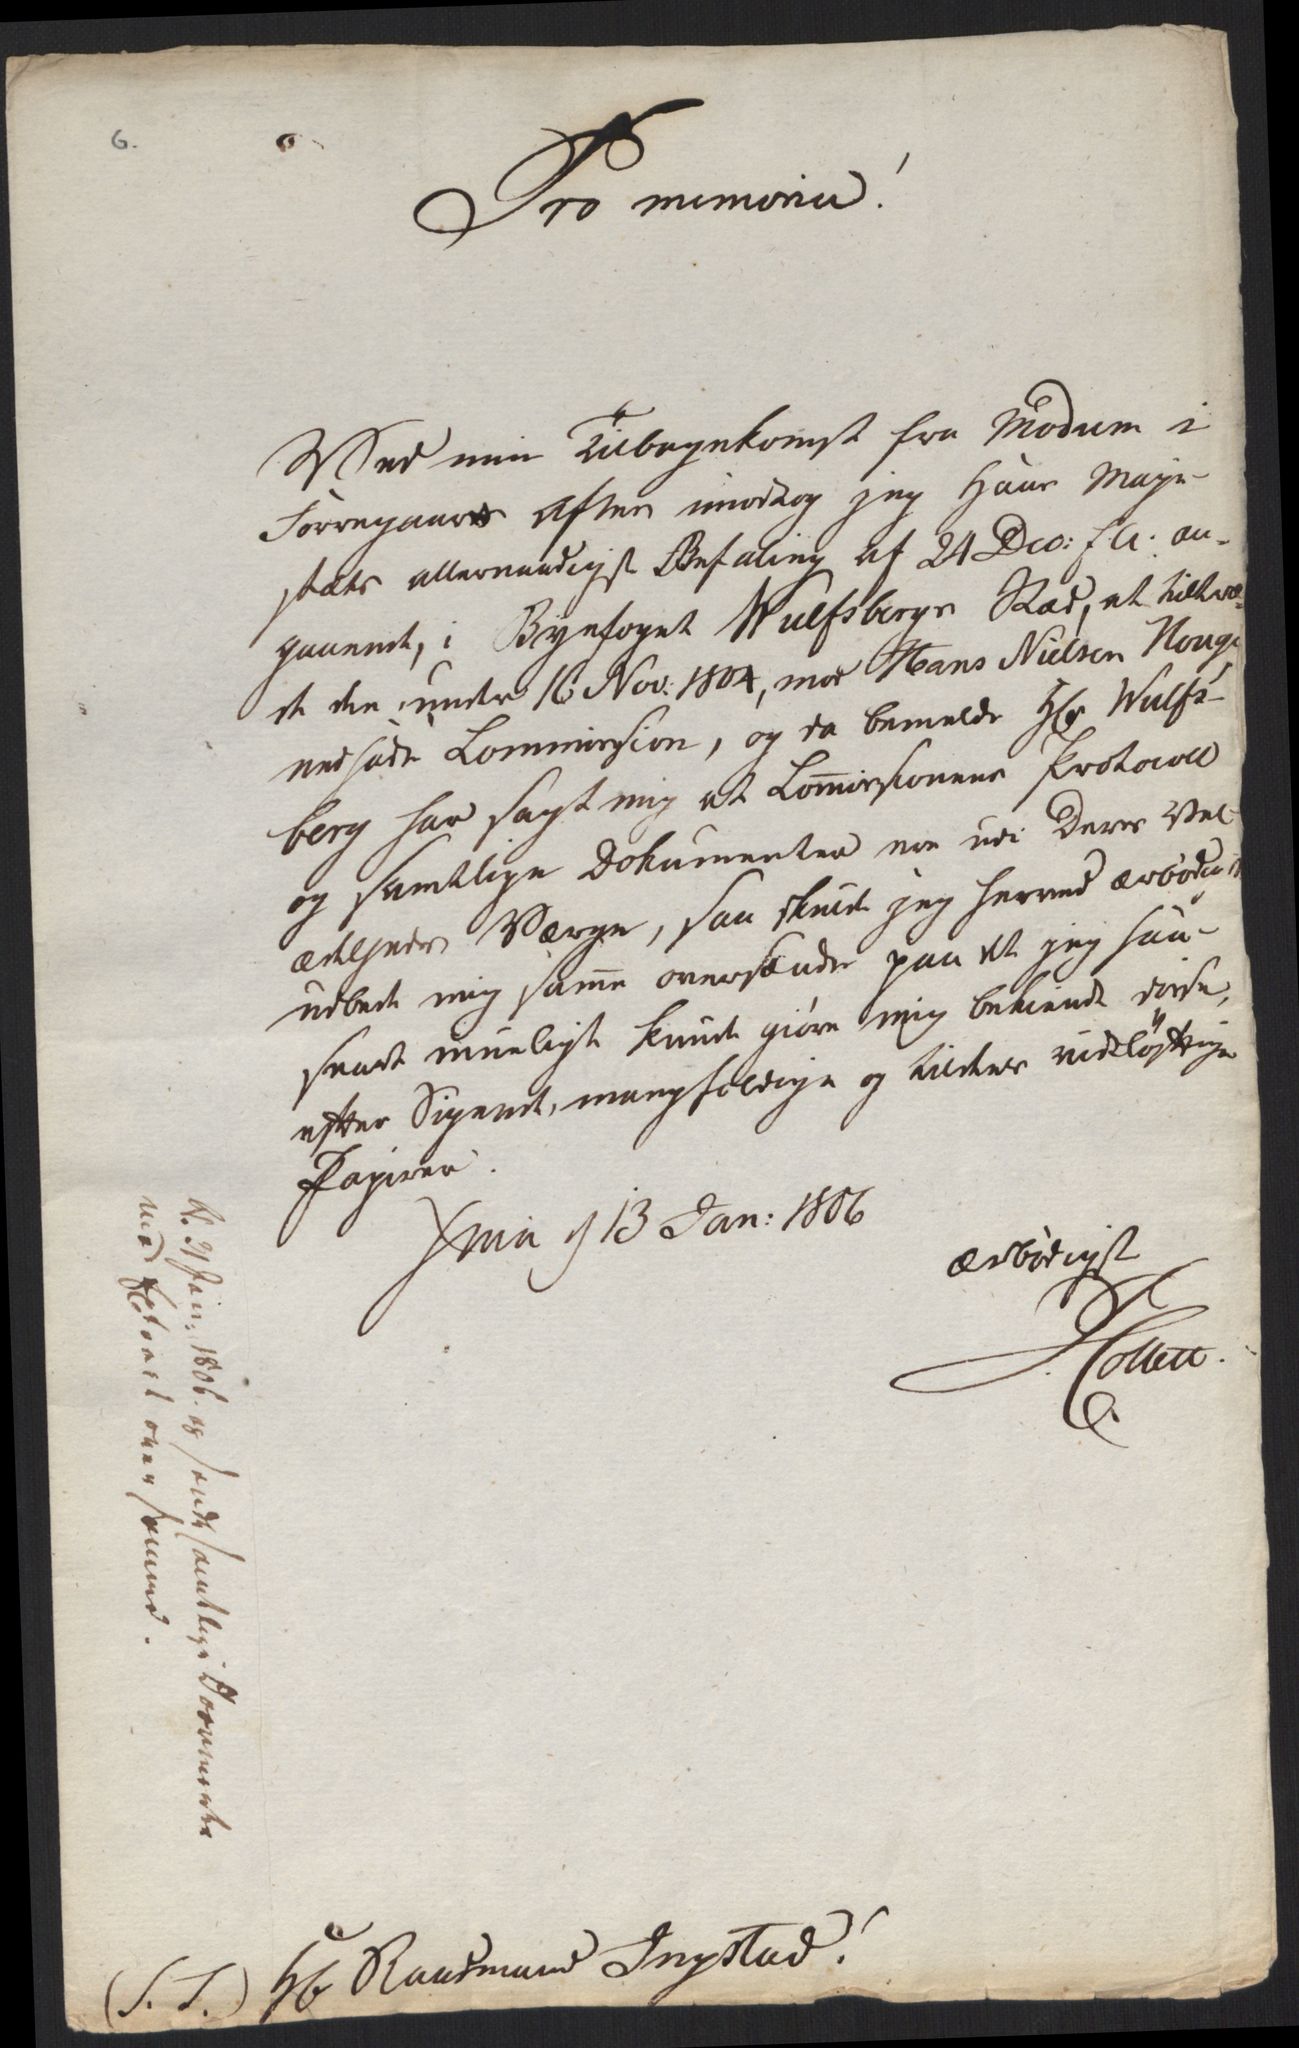 6.
Pro memoria!
Ved min Tilbagekomst fra Modum i
Forregaars Aftes imodtog jeg Hans Maje-
stæts allernaadigst Befaling af 24 Dec: f. A. an-
gaaende, i Byefoget Wulfsbergs Sted, at tiltræ-
de den under 16 Nov: 1804, mod Hans Nielsen Houge
nedsatte Commission, og da bemelde Hr Wulfs-
berg har sagt mig at Commissionens Protocoll
og samtlige Dokumenter ere udi Deres Vel-
ædelheds Værge, saa skulde jeg herved ærbødigst
udbede mig samme oversændte paa det jeg saa-
snart mueligt kunde giøre mig bekiendt disse,
efter Sigende, mangfoldige og tildeels vidtløftige
Papirer.
Xnia d 13 Jan: 1806
ærbødigst
J. Collett.
Jan: 1806. og sendt samtlige Documenter
med over samme.
(S. T.) Hr Raadmand Ingstad!